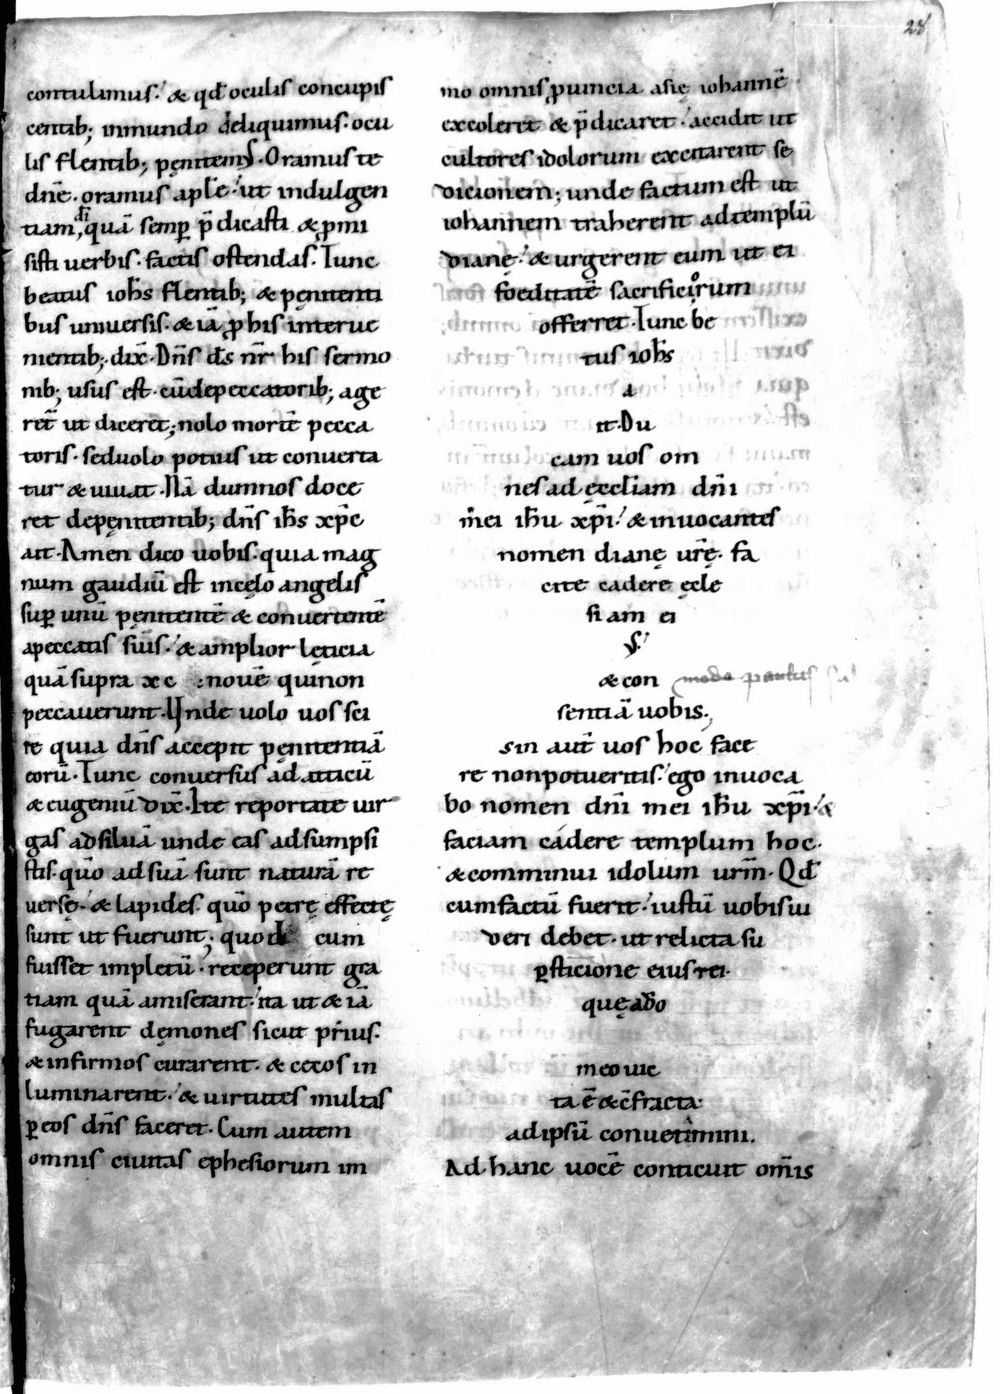 28
contulimus. & qđ oculis concupis
centib; inmundo deliquimus. ocu
lis flentib; pęnitem᷒. Oramus te
dnē. oramus aplē. ut indulgen
tiam, quā semꝑ p̄dicasti & ꝓmi
sisti verbis. factis ostendas. Tunc
beatus ioħs flentib; & pęnitenti
bus universis. & iā ꝓ his interue
nientib;. dix̄. Dn̄s d̄s nr̄ his sermo
nib; usus est. cū de peccatorib; age
ret ut diceret; nolo mortē pecca
toris. sed uolo potius ut conuerta
tur & uiuat. Nā dum nos doce
ret de pęnitentib; dn̄s ih̄s xp̄c
ait. Amen dico uobis. quia mag
num gaudiū est in cęlo angelis
suꝑ unū pęnitentē & conuertentē
a peccatis suis. & amplior lęticia
quā supra xc nouē qui non
peccauerunt. Unde uolo uos sci
re quia dn̄s accepit pęnitentiā
eorū. Tunc conuersus ad atticū
& eugeniū dix̄. Ite reportate uir
gas ad siluā unde eas adsumpsi
stis. quō ad suā sunt naturā re
uersę. & lapides quō petrę effectę
sunt ut fuerunt; quod cum
fuisset impletū. receperunt gra
tiam quā amiserant. ita ut & iā
fugarent dęmones sicut prius.
& infirmos curarent. & cecos in
luminarent. & uirtutes multas
ꝑ eos dn̄s faceret. Cum autem
omnis ciuitas ephesiorum im
mo omnis ꝓuincia asię iohannē
excoleret & p̄dicaret. accidit ut
cultores idolorum excitarent se
dicionem; unde factum est ut
iohannem traherent ad templū
dianę. & urgerent eum ut ei
foeditatē sacrificiorum
offerret. Tunc be
tus ioħs
a
it. Du
cam uos om
nes ad ęccl̄iam dn̄i
mei ih̄u xp̄i. & inuocantes
nomen dianę urę̄. fa
cite cadere ęcle
siam ei
᷒.
& con modo paulus
sentiā uobis.
sin aut̄ uos hoc face
re non potueritis. ego inuoca
bo nomen dn̄i mei ih̄u xp̄i. &
faciam cadere templum hoc.
& comminui idolum urm̄. Qđ
cum factū fuerit. iustū uobis ui
deri debet. ut relicta su
ꝑsticione eius rei.
quę a dō
meo uic
ta ē & c̄fracta.
ad ipsū conuertimini.
Ad hanc uocē conticuit om̄is